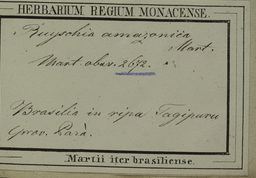 HERBARIUM REGIUM MONACENSE.
Ruyschia amazonica
Mart.
Mart. obs. 2672.
Brasilia in ripa Tagipuru
prov. Pará.
Martii iter brasiliense.